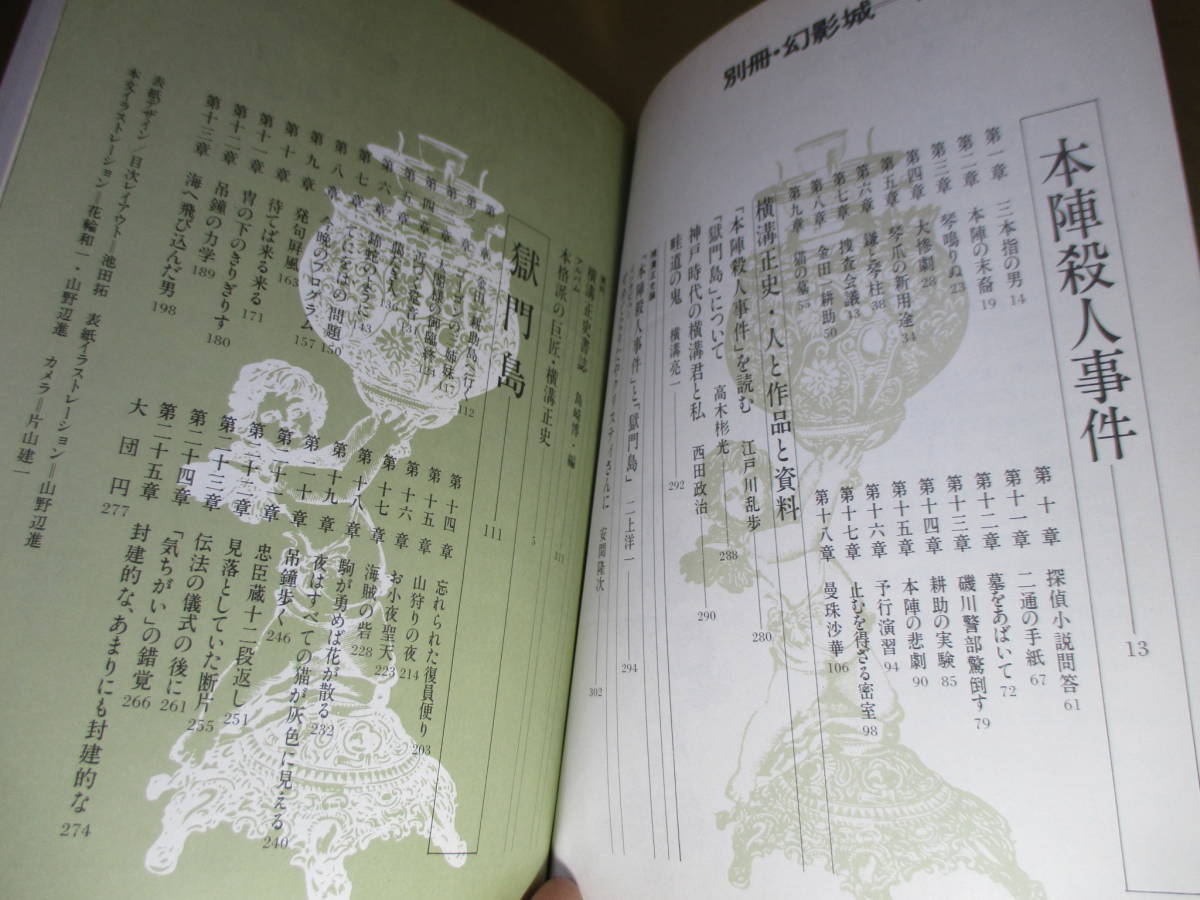 別冊・幻影城
本陣殺人事件 13
第一章 三本指の男 14
第二章 本陣の末裔 19
第三章 琴鳴りぬ 23
第四章 大惨劇 28
第五章 琴爪の新用途 34
第六章 鎌と琴柱 38
第七章 捜査会議 43
第八章 金田一耕助 50
第九章 猫の墓 55
第十章 探偵小説問答 61
第十一章 二通の手紙 67
第十二章 墓をあばいて 72
第十三章 磯川警部驚倒す 79
第十四章 耕助の実験 85
第十五章 本陣の悲劇 90
第十六章 予行演習 94
第十七章 止むを得ざる密室 98
第十八章 曼珠沙華 106
横溝正史・人と作品と資料
「本陣殺人事件」を読む 江戸川乱歩 280
「獄門島」について 高木彬光 288
神戸時代の横溝君と私 西田政治 290
畦道の鬼 横溝亮一 292
「本陣殺人事件」と「獄門島」 二上洋一 294
安間隆次 302
横溝正史書誌 島崎博・編 311
アルバム
本格派の巨匠・横溝正史 5
獄門島 111
金田一耕助島へ行く 112
ゴーゴンの三姉妹 117
太閤様の御臨終 124
第六章 錦蛇のように 143
第七章 てにをはの問題 150
第八章 今晩のプログラム 157
第九章 発句屏風 163
第十章 待てば来る来る 171
第十一章 冑の下のきりぎりす 180
第十二章 吊鐘の力学 189
第十三章 海へ飛び込んだ男 198
第十四章 忘れられた復員便り 203
第十五章 山狩りの夜 214
第十六章 お小夜聖天 223
第十七章 海賊の砦 228
第十八章 駒が勇めば花が散る 232
第十九章 夜はすべての猫が灰色に見える 240
第二十章 吊鐘歩く 246
第二十一章 忠臣蔵十二段返し 251
第二十二章 見落としていた断片 255
第二十三章 伝法の儀式の後に 261
第二十四章 「気ちがい」の錯覚 266
第二十五章 封建的な、あまりにも封建的な 274
大団円 277
表紙デザイン／目次レイアウト＝池田拓 表紙イラストレーション＝山野辺進
本文イラストレーション＝花輪和一・山野辺進 カメラ＝片山建一